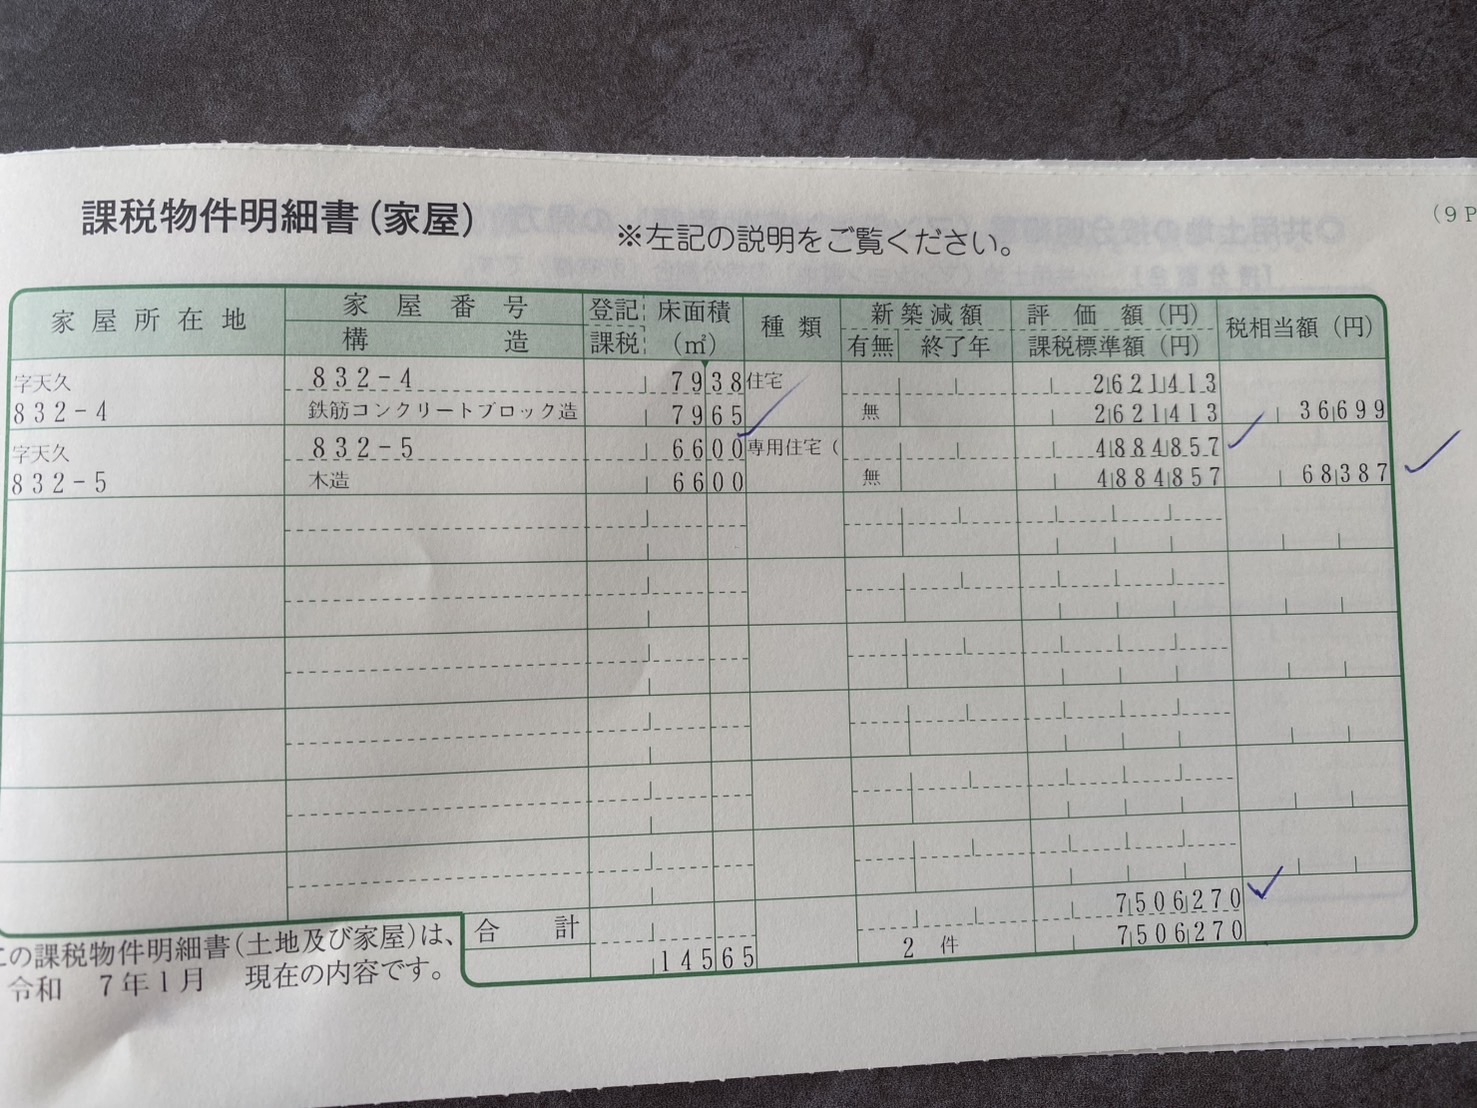 課税物件明細書(家屋)
※左記の説明をご覧ください。
(9P
家屋所在地 家屋番号 登記 床面積 種類 新築減額 評価額(円) 税相当額(円)
構造 課税 (㎡) 有無 終了年 課税標準額(円)
字天久 832-4 7938 住宅 2621413
832-4 鉄筋コンクリートブロック造 7965 無 2621413 36699
字天久 832-5 6600 専用住宅( 4884857
832-5 木造 6600 無 4884857 68387
合計 7506270
14565 2件 7506270
この課税物件明細書(土地及び家屋)は、
令和 7年1月 現在の内容です。